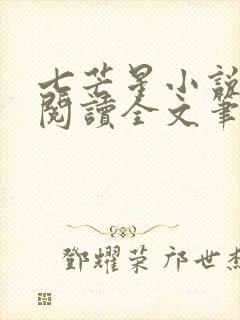 七芒星小說
閱讀全文筆
鄧耀荣 邝世杰